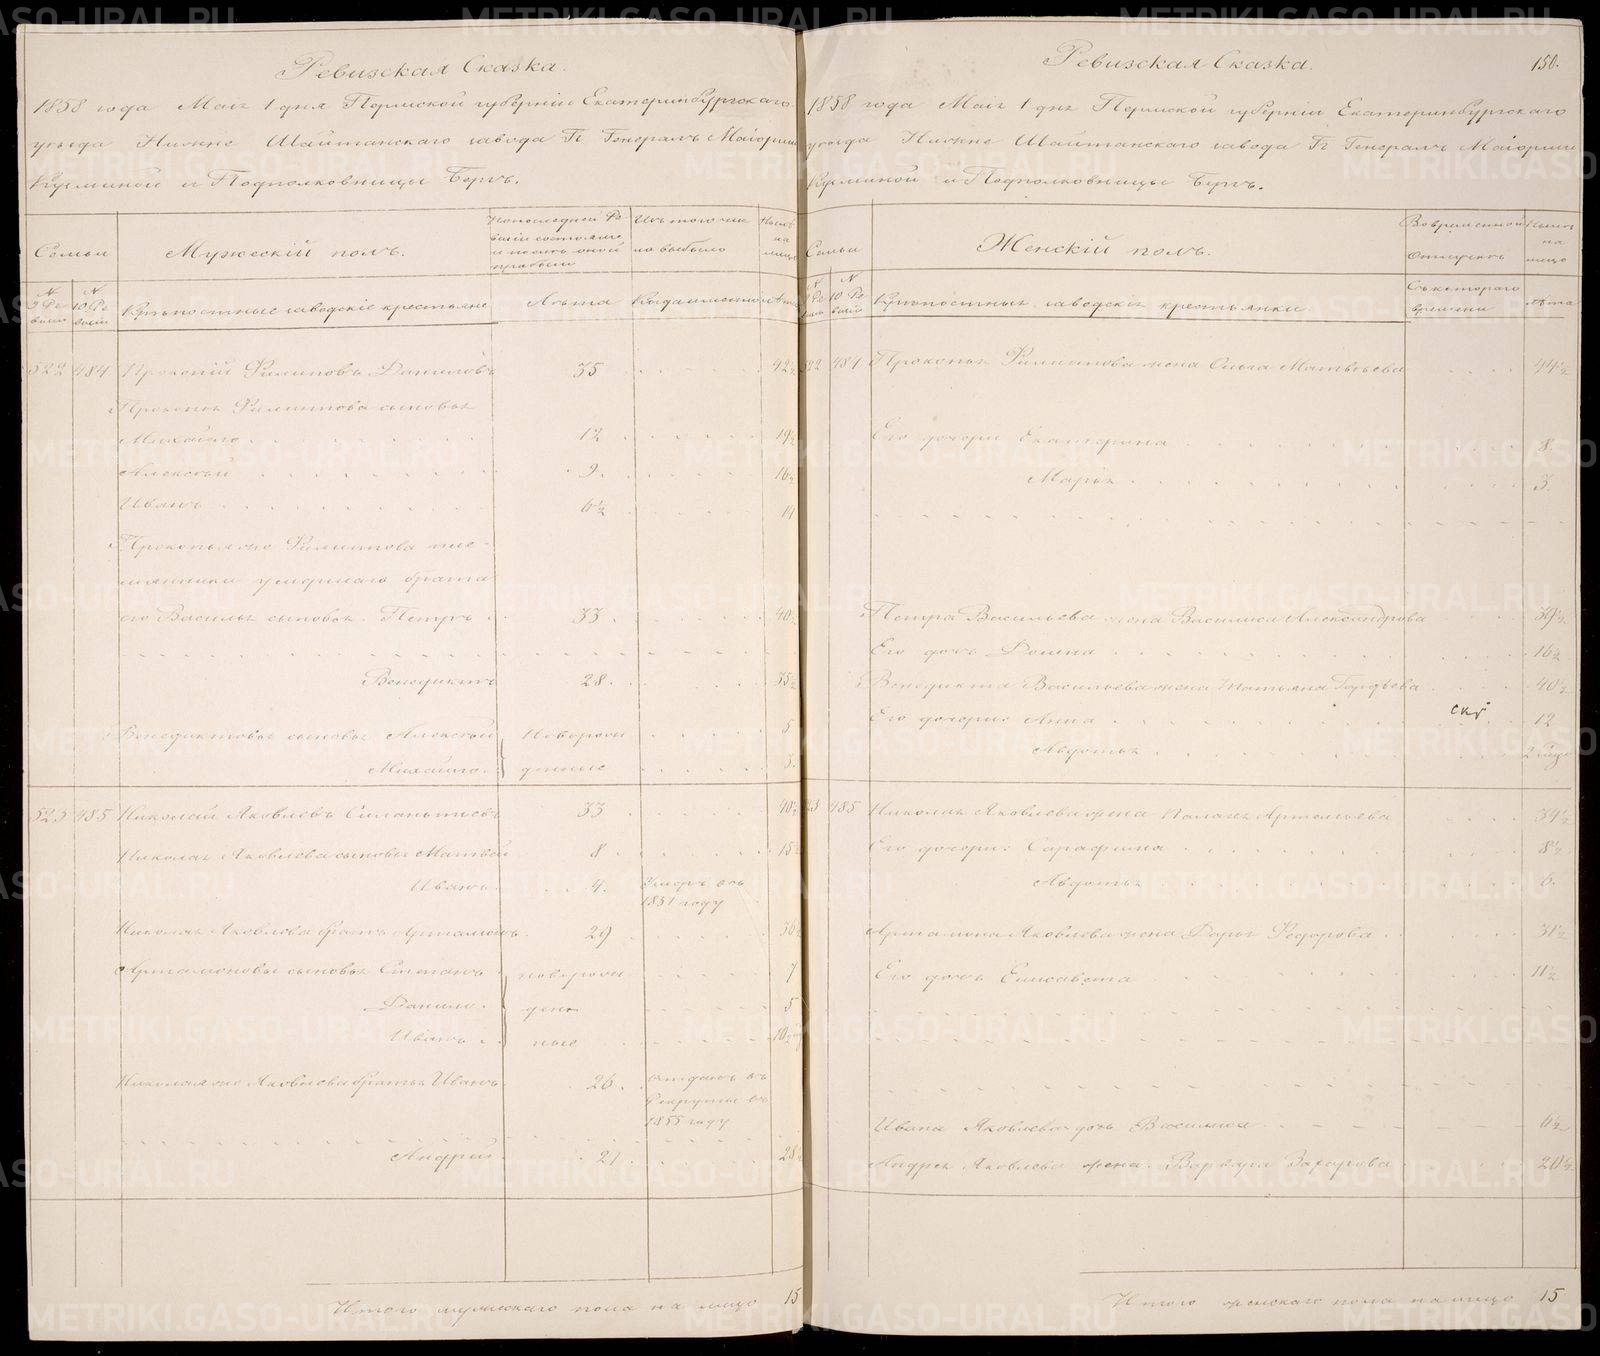 Ревизская Сказка.
1858 года Маія 1 дня Пермской губерніи Екатеринбургскаго
уезда Нижне Шайтанскаго завода Гг Генералъ Маіорши
Кузминой и Подполковницы Бергъ.
Семьи
Мужескій полъ.
По последней Ре-
визіи состояло
и после оной
прибыло
Изъ того чис
ла выбыло
Ныне
на
лицо
№ 9 Ре
визіи
№ 10 Ре
визіи
Крѣпостные заводскіе крестьяне
Лѣта
Когда именно
Лѣта
522 484 Прокопій Филиповъ Даниловъ 35 42½
Прокопья Филиппова сыновья
Михайло 12 19½
Алексѣй 9 16½
Иванъ 6½ 14
Прокопья же Филиппова пле-
мянники умершаго брата
его Василья сыновья Петръ 33 40½
Венедиктъ 28 35½
Венедиктовы сыновья Алексѣй Новорож 5
Михайло денные 3
523 485 Николай Яковлевъ Силантьевъ 33 40½
Николая Яковлева сыновья Матвей 8 15½
Иванъ 4 Умеръ въ
1851 году
Николая Яковлева братъ Артамонъ 29 36½
Артамоновы сыновья Степанъ новорож 7
Данило ден 5
Иванъ ные 10
Николая же Яковлева братья Иванъ 26 отданъ въ
Рекруты въ
1855 году
Андрей 21 28½
Итого мужескаго пола на лицо 15
Ревизская Сказка. 150.
1858 года Маія 1 дня Пермской губерніи Екатеринбургскаго
уезда Нижне Шайтанскаго завода Гг Генералъ Маіорши
Кузминой и Подполковницы Бергъ.
Семьи
Женскій полъ.
Во временной
отлучкѣ
Ныне
на
лицо
№ 9 Ре
визіи
№ 10 Ре
визіи
Крѣпостныя заводскія крестьянки
Съ котораго
времени
Лѣта
522 484 Прокопья Филиппова жена Ольга Матвѣева 44½
Его дочери Екатерина 8
Марья 3
Петра Васильева жена Василиса Александрова 39½
Его дочь Домна 16½
Венедикта Васильева жена Татьяна Гордѣева 40½
Его дочери: Анна 12
Авдотья
523 485 Николая Яковлева жена Палагея Артемьева 34½
Его дочери: Серафима 8½
Авдотья 6
Артамона Яковлева жена Дарья Федорова 31½
Его дочь Елисавета 11½
Ивана Яковлева дочь Василиса 6½
Андрея Яковлева жена Варвара Захарова 20½
Итого женскаго пола на лицо 15
METRIKI.GASO-URAL.RU